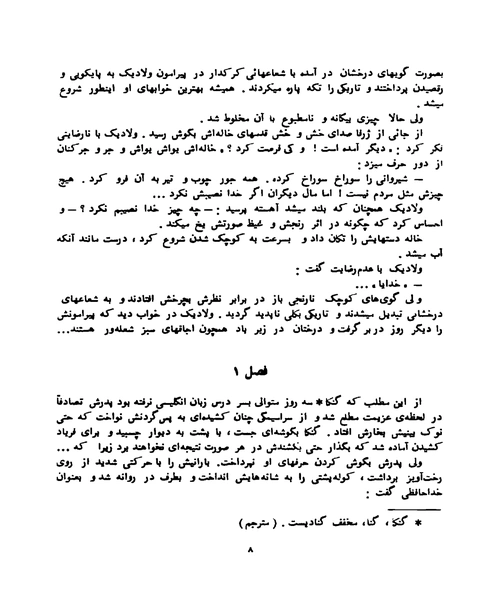 بصورت گویهای درخشان در آمده با شعاعهائی کرکدار در پیرامون ولادیک به پایکوبی و
رقصیدن پرداختند و تاریکی را تکه پاره میکردند. همیشه بهترین خوابهای او اینطور شروع
میشد.
ولی حالا چیزی بیگانه و نامطبوع با آن مخلوط شد.
از جائی از ژرفا صدای خش و خش قدمهای خاله‌اش بگوش رسید. ولادیک با نارضایتی
فکر کرد: «دیگر آمده است! و کی فرصت کرد؟» خاله‌اش یواش یواش و جر و جرکنان
از دور حرف میزد:
— شیروانی را سوراخ سوراخ کرده. همه جور چوب و تیر به آن فرو کرد. هیچ
چیزش مثل مردم نیست! اما مال دیگران اگر خدا نصیبش نکرد...
ولادیک همچنان که بلند میشد آهسته پرسید: — چه چیز خدا نصیبم نکرد؟ — و
احساس کرد که چگونه در اثر رنجش و غیظ صورتش یخ میکند.
خاله دستهایش را تکان داد و بسرعت به کوچک شدن شروع کرد، درست مانند آنکه
آب میشد.
ولادیک با عدم‌رضایت گفت:
— «خدایا»...
ولی گوی‌های کوچک نارنجی باز در برابر نظرش بچرخش افتادند و به شعاعهای
درخشانی تبدیل میشدند و تاریکی بکلی ناپدید گردید. ولادیک در خواب دید که پیرامونش
را دیگر روز در بر گرفت و درختان در زیر باد همچون اجاقهای سبز شعله‌ور هستند...
فصل ۱
از این مطلب که گنکا* سه روز متوالی بسر درس زبان انگلیسی نرفته بود پدرش تصادفاً
در لحظه‌ی عزیمت مطلع شد و از سراسیمگی چنان کشیده‌ای به پس‌گردنش نواخت که حتی
نوک بینیش بخارش افتاد. گنکا بگوشه‌ای جست، با پشت به دیوار چسبید و برای فریاد
کشیدن آماده شد که بگذار حتی بکشندش در هر صورت نتیجه‌ای نخواهند برد زیرا که...
ولی پدرش بگوش کردن حرفهای او نپرداخت. بارانیش را با حرکتی شدید از روی
رخت‌آویز برداشت، کوله‌پشتی را به شانه‌هایش انداخت و بطرف در روانه شد و بعنوان
خداحافظی گفت:
* گنکا، گنا، مخفف گنادیست. (مترجم)
۸